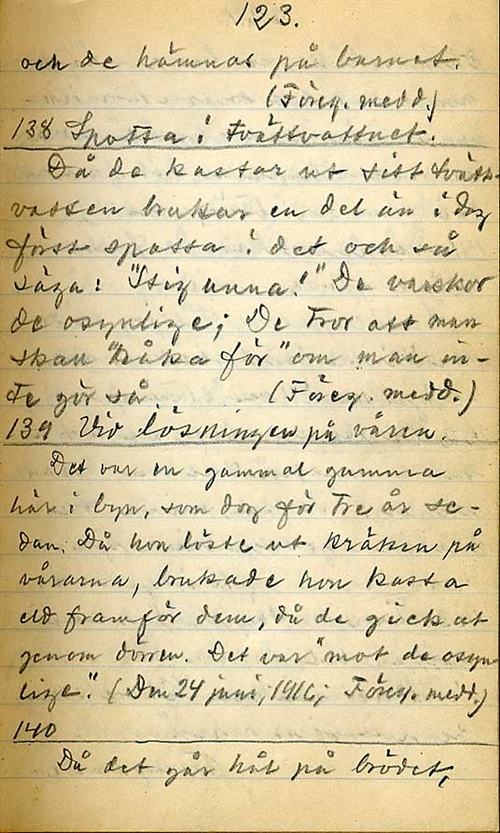 123.
och de hämnas på barnet.
(Föreg. medd.)
138 Spotta i tvättvattnet.
Då de kastar ut sitt tvätt-
vatten brukar en del än i dag
först spotta i det och så
säga: "Stig unna!" De varskor
de osynlige; De tror att man
skall "råka för" om man in-
te gör så. (Föreg. medd.)
139 Vid lösningen på våren.
Det var en gammal gumma
här i byn, som dog för tre år se-
dan. Då hon löste ut kräken på
vårarna, brukade hon kasta
eld framför dem, då de gick ut
genom dörren. Det var "mot de osyn-
lige." (Den 24 juni, 1916; Föreg. medd.)
140
Då det går hål på brödet,